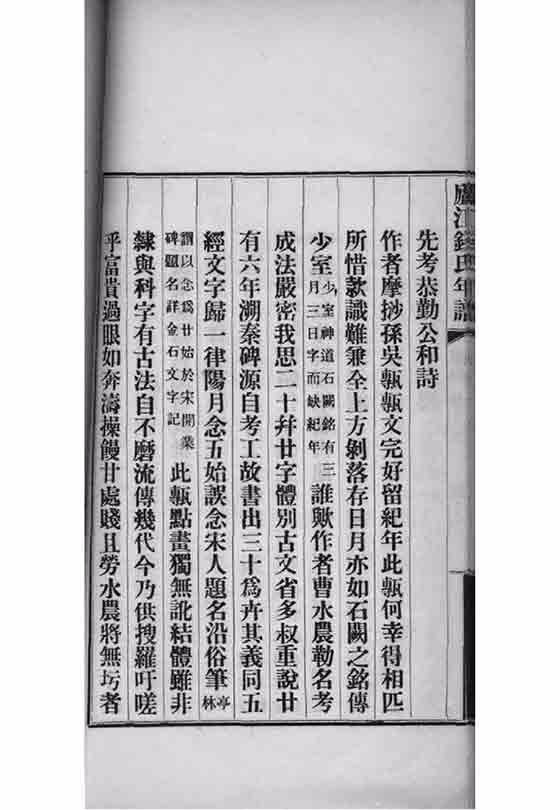 廬江錢氏年譜
先考恭勤公和詩
作者摩挱孫吳甎甎文完好留紀年此甎何幸得相匹
所惜欵識難兼全上方剝落存日月亦如石闕之銘傳
少室少室神道石闕銘有三月三日字而缺紀年誰歟作者曹水農勒名考
成法嚴密我思二十幷廿字體別古文省多叔重說廿
有六年溯秦碑源自考工故書出三十爲卉其義同五
經文字歸一律陽月念五始誤念宋人題名沿俗筆亭林
謂以念爲廿始於宋開業碑題名詳金石文字記此甎點畫獨無訛結體雖非
隸與科字有古法自不磨流傳幾代今乃供搜羅吁嗟
乎富貴過眼如奔濤操鏝甘處賤且勞水農將無圬者